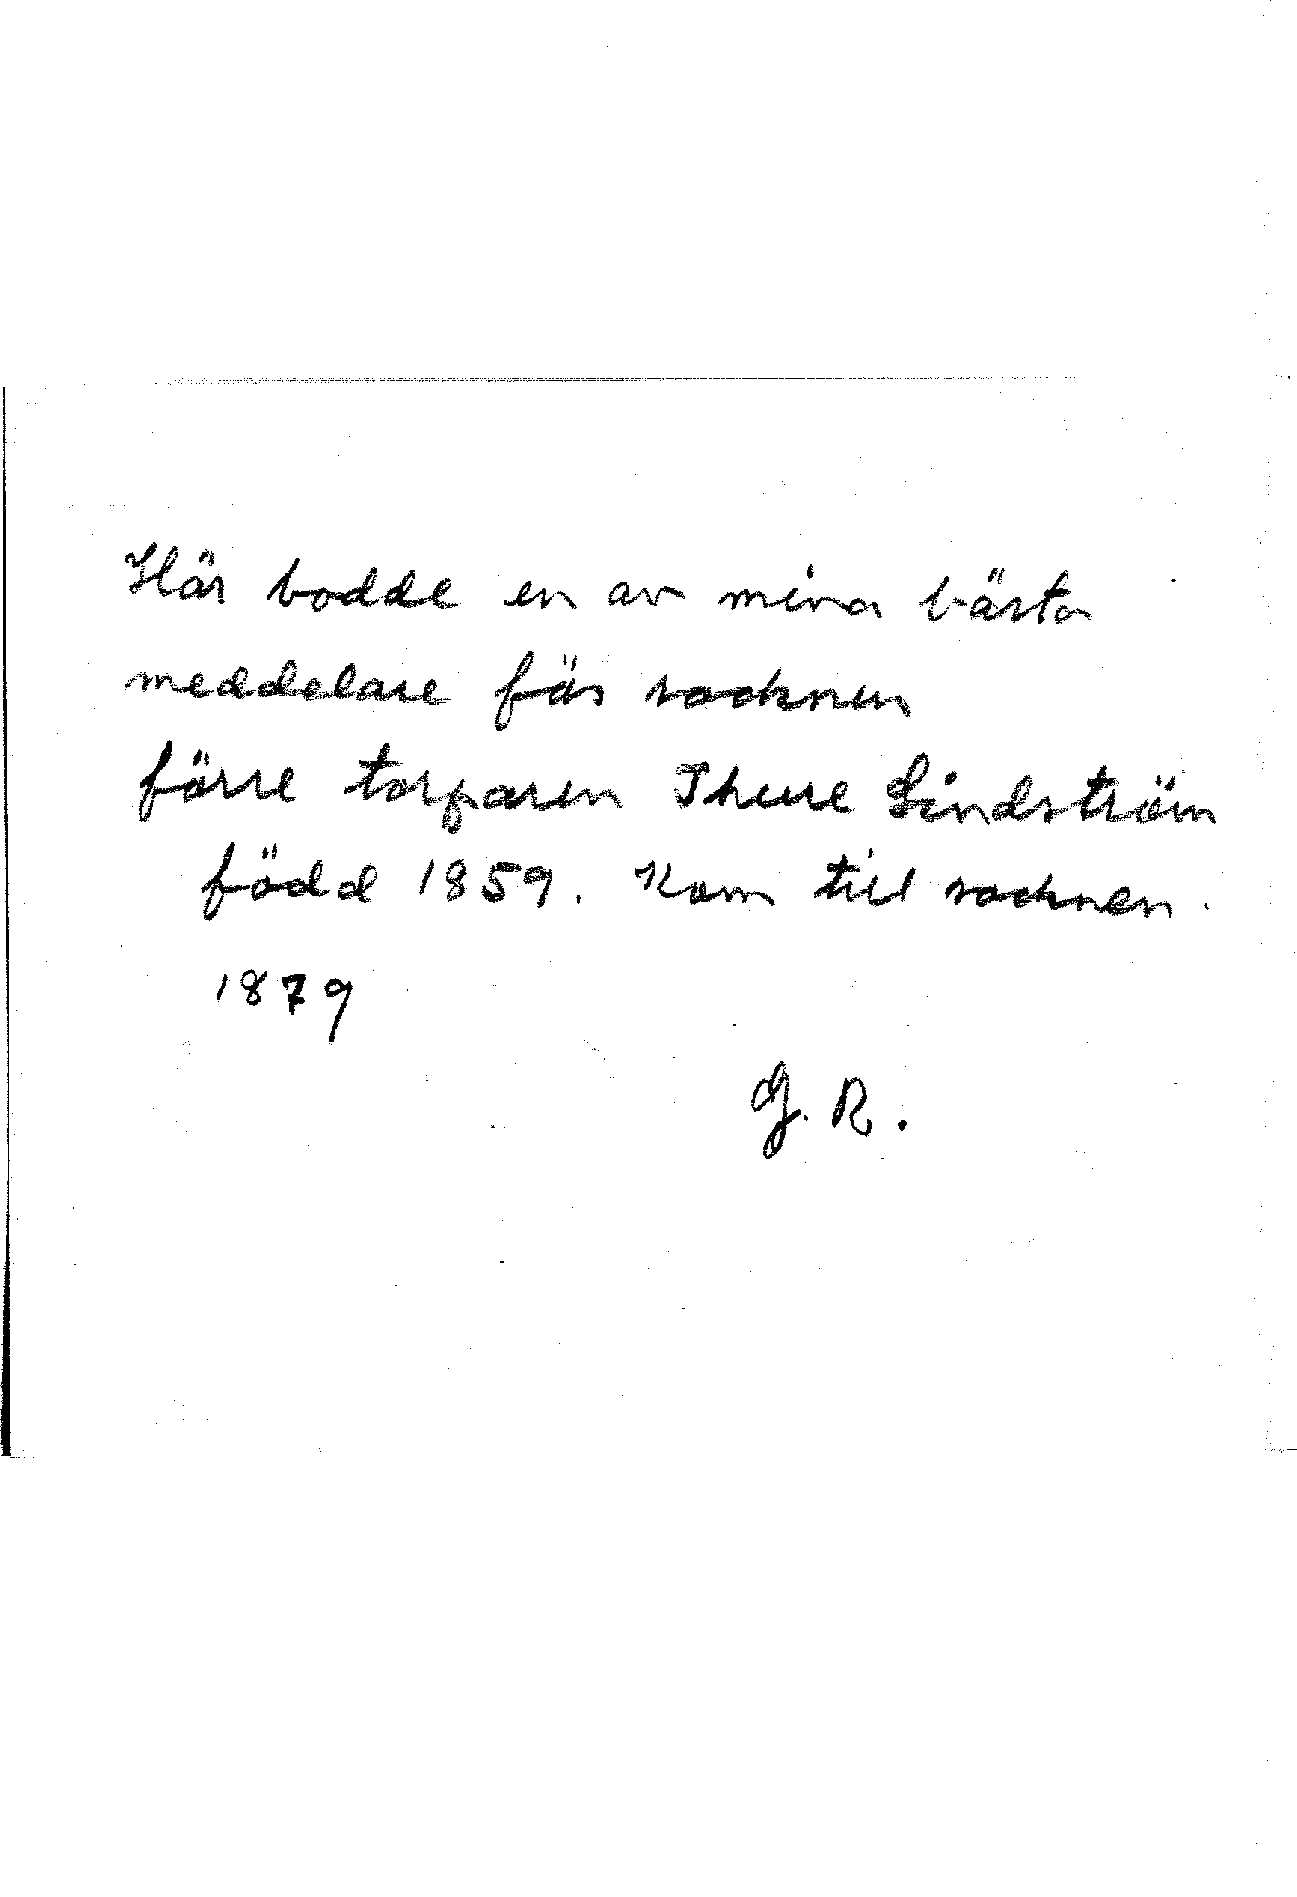 Här bodde en av mina bästa
meddelare för socknen
förre torparen Thure Lindström
född 1859. Kom till socknen.
1879
G. R.